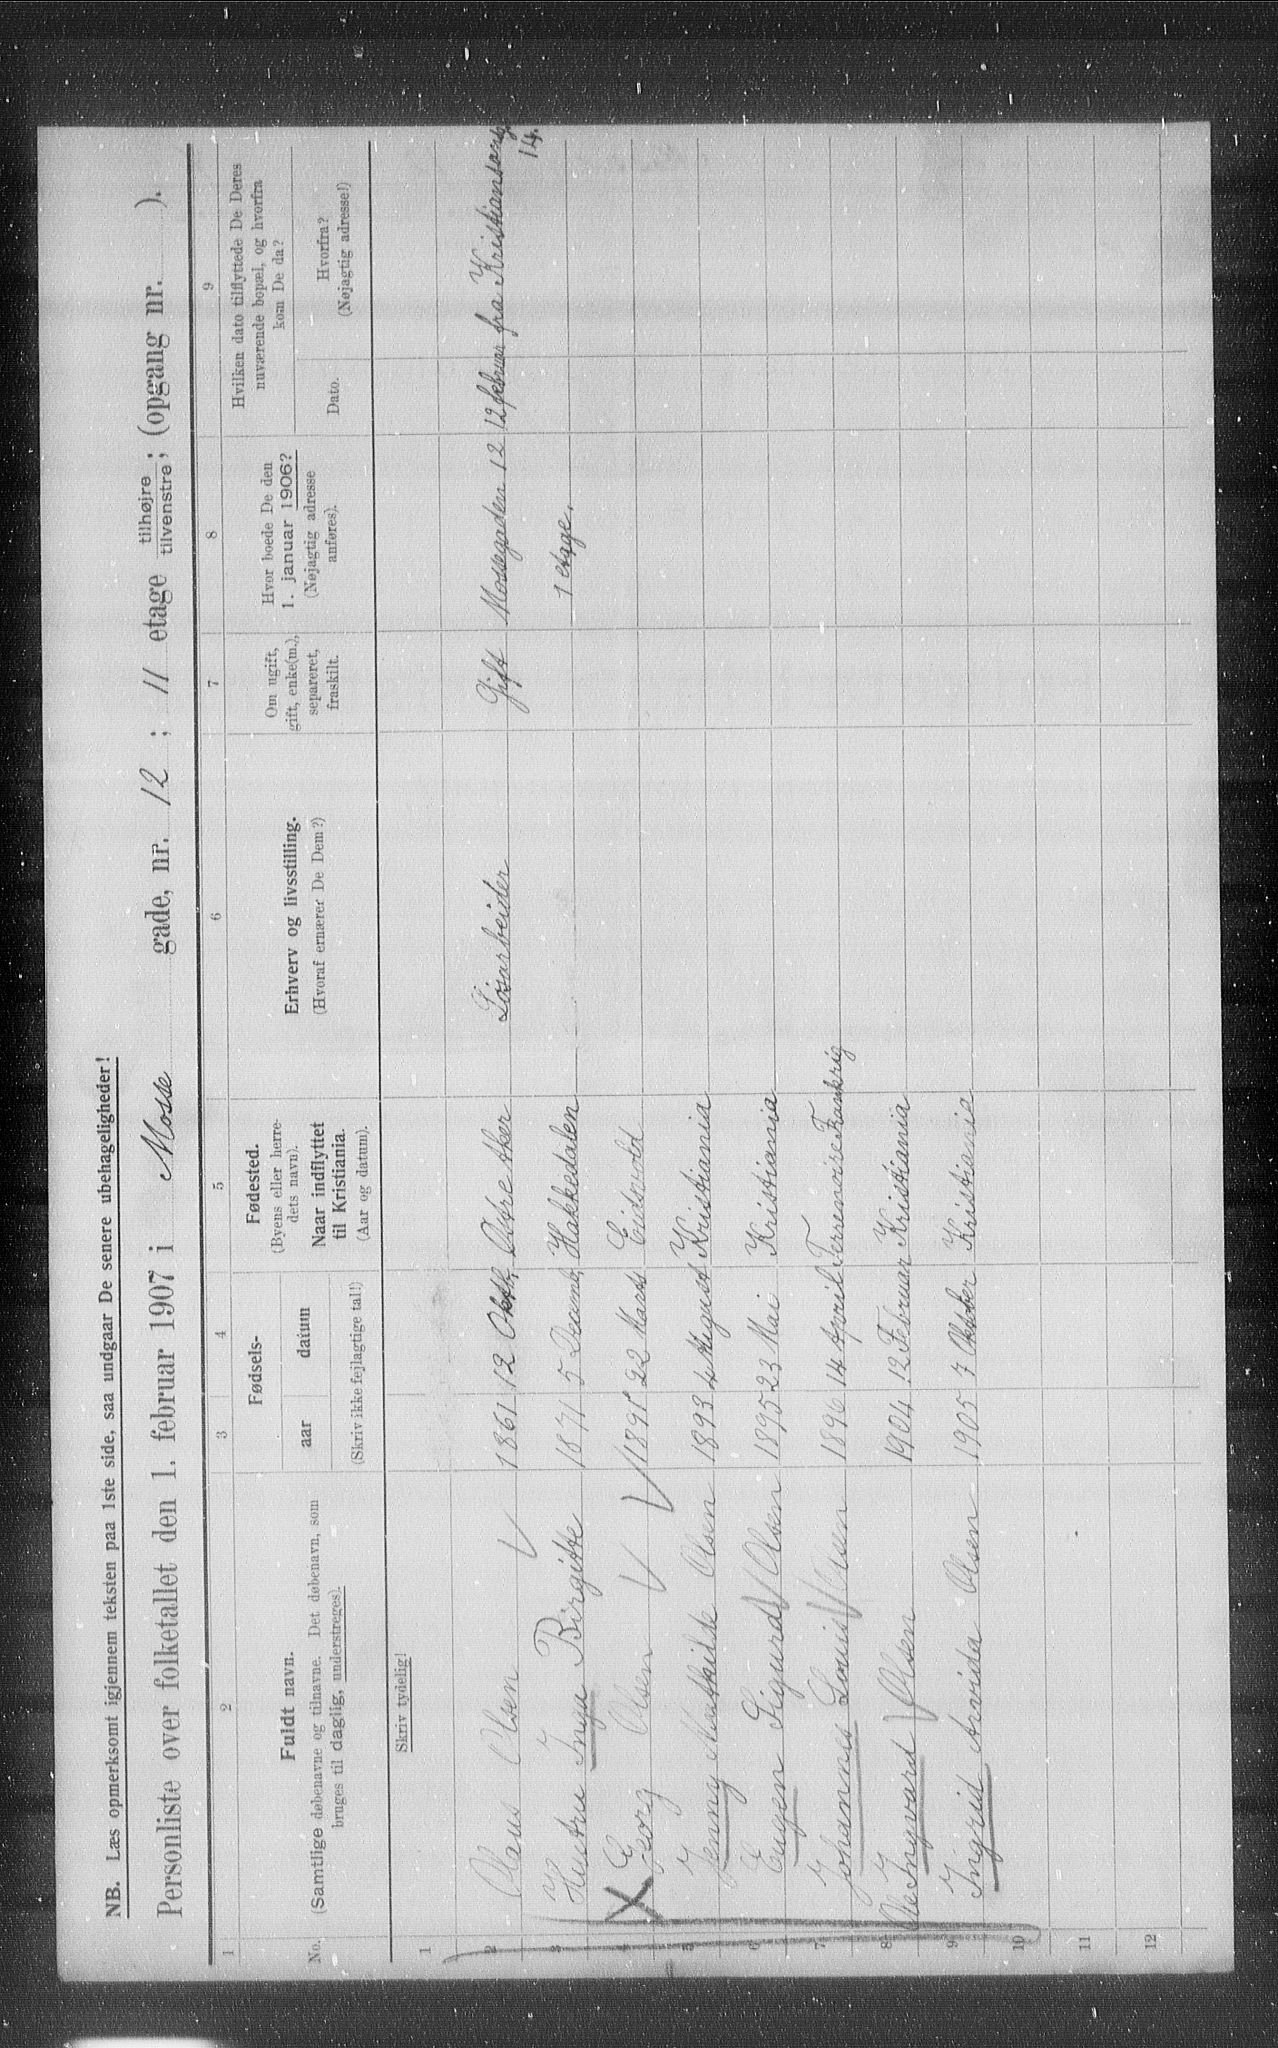 NB. Læs opmerksomt igjennem teksten paa 1ste side, saa undgaar De senere ubehageligheder!
Personliste over folketallet den 1. februar 1907 i Mosse gade, nr. 12; 11 etage tilhøjre/tilvenstre; (opgang nr. ).
1 2 3 4 5 6 7 8 9
No.
Fuldt navn.
(Samtlige døbenavne og tilnavne. Det døbenavn, som
bruges til daglig, understreges).
Fødsels-
aar datum
(Skriv ikke fejlagtige tal!)
Fødested.
(Byens eller herre-
dets navn).
Naar indflyttet
til Kristiania.
(Aar og datum).
Erhverv og livsstilling.
(Hvoraf ernærer De Dem?)
Om ugift,
gift, enke(m.),
separeret,
fraskilt.
Hvor boede De den
1. januar 1906?
(Nøjagtig adresse
anføres).
Hvilken dato tilflyttede De Deres
nuværende bopæl, og hvorfra
kom De da?
Dato.
Hvorfra?
(Nøjagtig adresse!)
Skriv tydelig!
1
2 Olaus Olsen 1861 12 Oktb. Østre Aker Løsarbeider Gift Mossegaden 12 12 februar fra Kristiansandg
14.
3 Hustru Inga Birgitte 1871 5 Decemb. Hakkedalen 1 etage.
4 Georg Olsen 1891 22 Marts Eidsvold
5 Jenny Mathilde Olsen 1893 4 August Kristiania
6 Eugen Sigurd Olsen 1895 23 Mai Kristiania
7 Johannes Louis 1896 14 April Frankrig
8 Ole Ingvard Olsen 1904 12 Februar Kristiania
9 Ingrid Arvida Olsen 1905 7 Oktober Kristiania
10
11
12